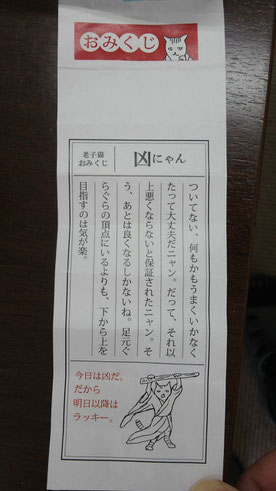 おみくじ
凶にゃん
老子猫
おみくじ
ついてない、何もかもうまくいかなく
たって大丈夫だニャン。だって、それ以
上悪くならないと保証されたニャン。そ
う、あとは良くなるしかないね。足元ぐ
らぐらの頂点にいるよりも、下から上を
目指すのは気が楽。
今日は凶だ。
だから
明日以降は
ラッキー。